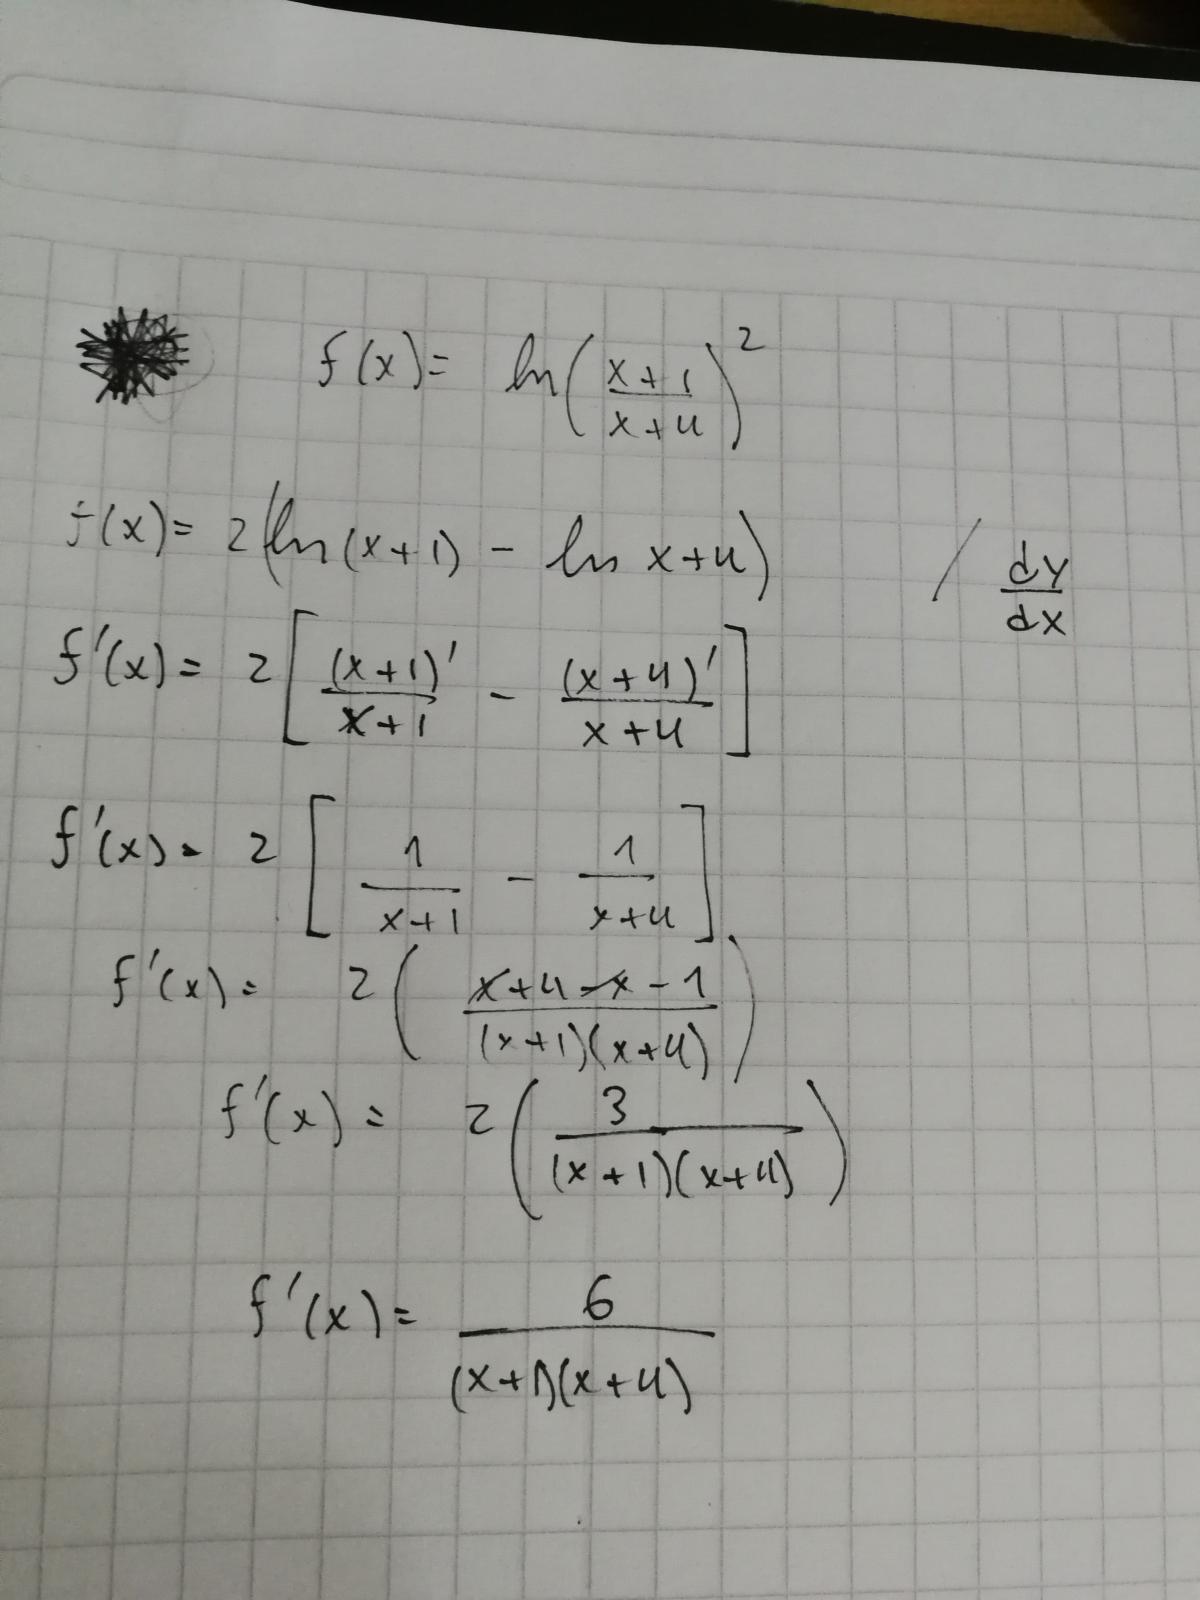 f(x) = ln((x+1)/(x+4))^2
f(x) = 2(ln(x+1) - ln x+4) / dy/dx
f'(x) = 2[(x+1)'/(x+1) - (x+4)'/(x+4)]
f'(x) = 2[1/(x+1) - 1/(x+4)]
f'(x) = 2((x+4-x-1)/((x+1)(x+4)))
f'(x) = 2(3/((x+1)(x+4)))
f'(x) = 6/((x+1)(x+4))